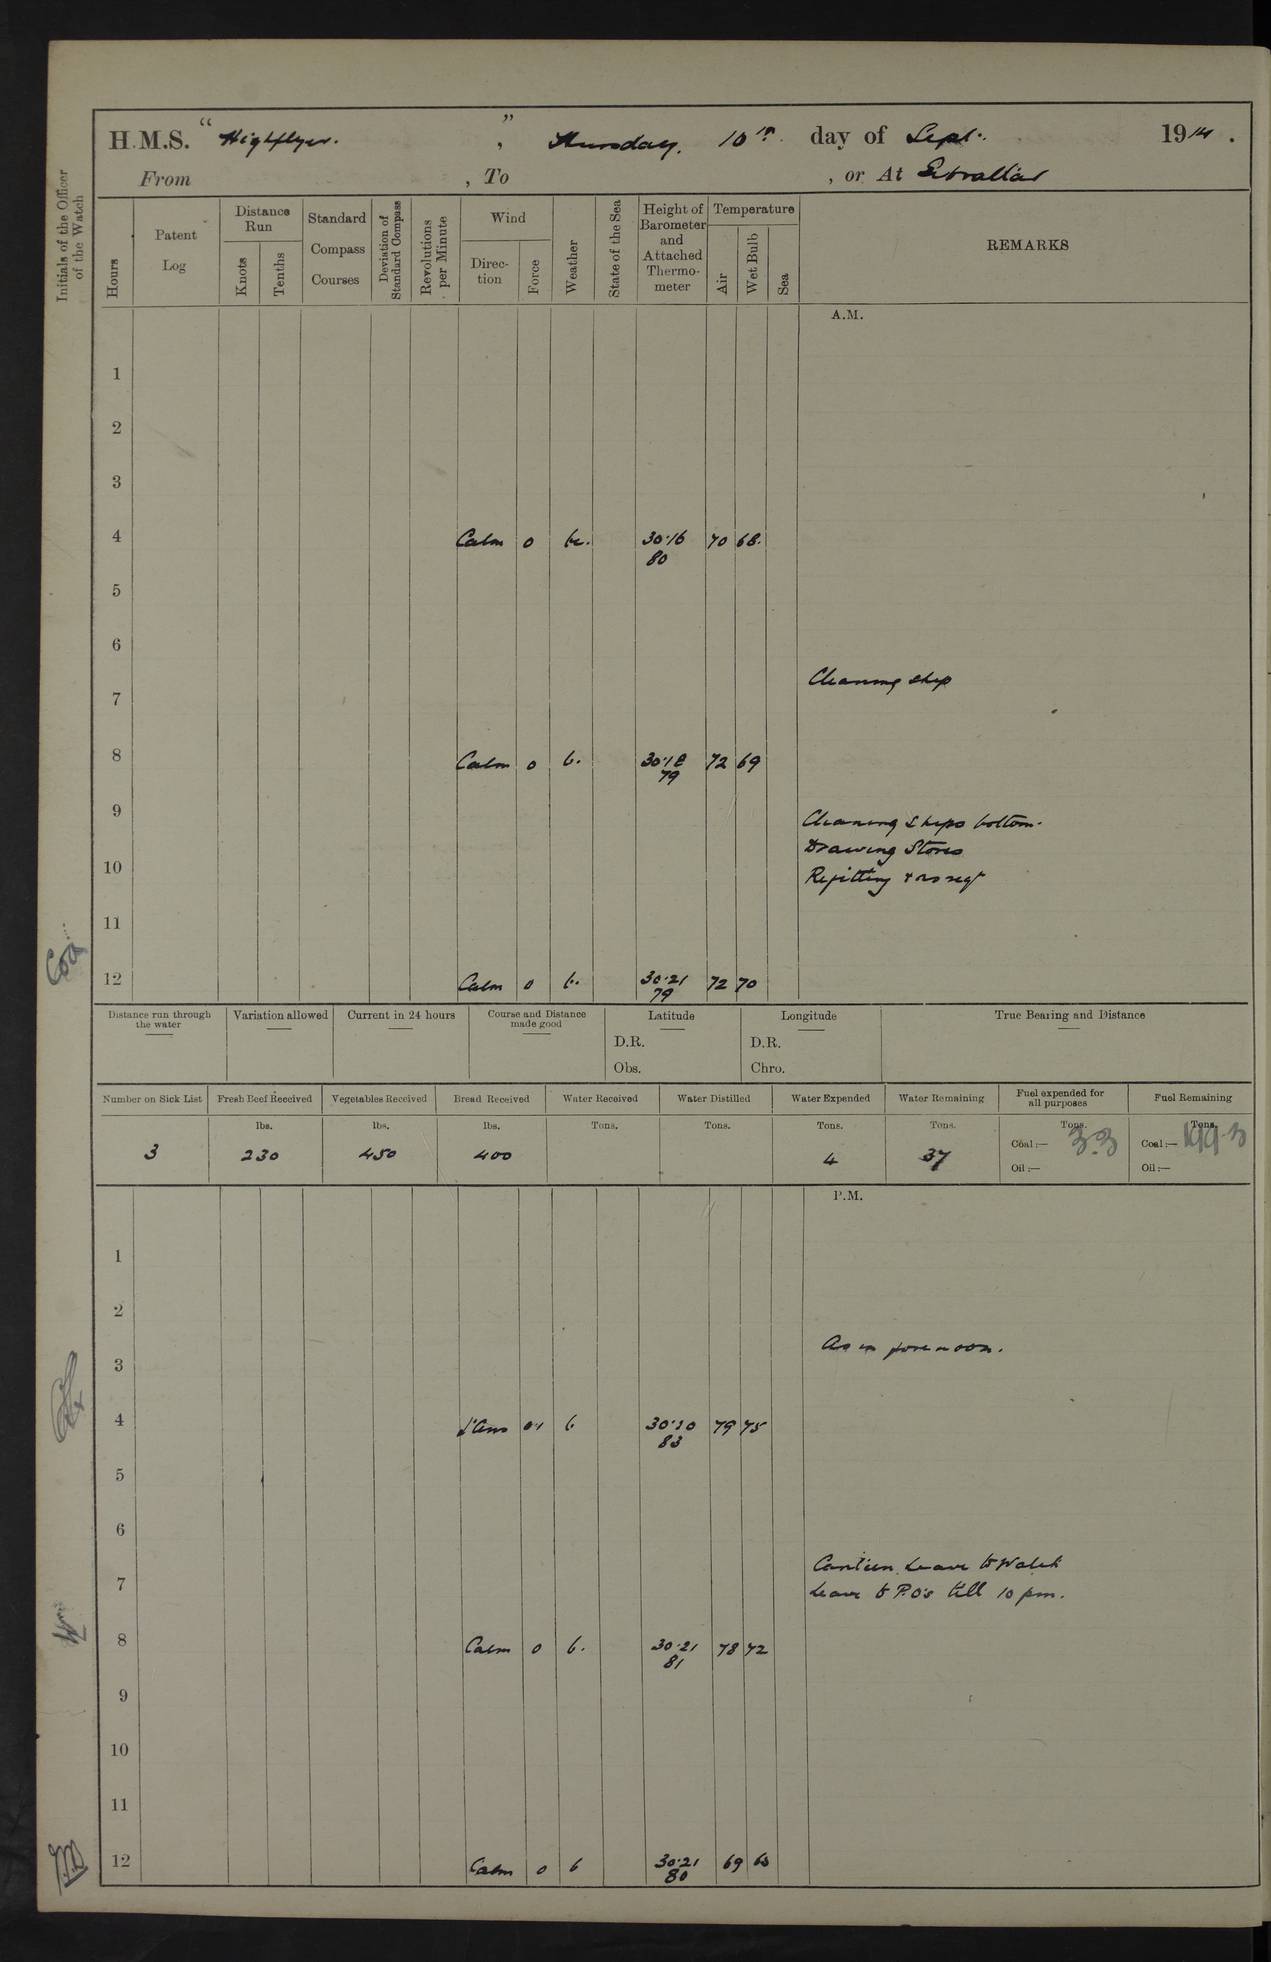 H.M.S. "Highflyer.", Thursday. 10th day of Sept. 1914.
From , To , or At Gibraltar
Initials of the Officer of the Watch
Hours
Patent Log
Distance Run
Knots
Tenths
Standard Compass Courses
Deviation of Standard Compass
Revolutions per Minute
Wind
Direction
Force
Weather
State of the Sea
Height of Barometer and Attached Thermometer
Temperature
Air
Wet Bulb
Sea
REMARKS
A.M.
1
2
3
4 Calm 0 bc. 30.16 70 68.
80
5
6
Cleaning ship
7
8 Calm 0 b. 30.18 72 69
79
9
Cleaning ships bottom.
Drawing Stores
10
Refitting & as reqt
11
12 Calm 0 b. 30.21 72 70
79
Distance run through the water
Variation allowed
Current in 24 hours
Course and Distance made good
Latitude
D.R.
Obs.
Longitude
D.R.
Chro.
True Bearing and Distance
Number on Sick List
3
Fresh Beef Received
lbs.
230
Vegetables Received
lbs.
450
Bread Received
lbs.
400
Water Received
Tons.
Water Distilled
Tons.
Water Expended
Tons.
4
Water Remaining
Tons.
37
Fuel expended for all purposes
Tons.
Coal:— 3.3
Oil:—
Fuel Remaining
Tons.
Coal:—
Oil:—
P.M.
1
2
As in forenoon.
3
4 0.1 b 79 75
83
5
6
Canteen leave to Watch
7
leave to P.O's till 10 pm.
8 Calm 0 b. 30.21 78 72
81
9
10
11
12 Calm 0 b 30.21 69
80